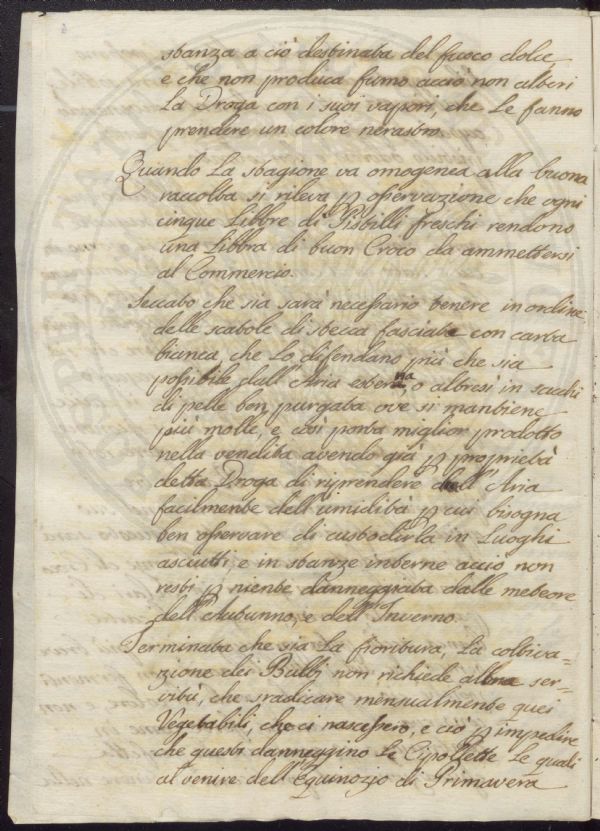 stanza a ciò destinata del fuoco dolce,
e che non produca fumo acciò non alteri
la Droga con i suoi vapori, che le fanno
prendere un colore nerastro.
Quando la stagione va omogenea alla buona
raccolta si rileva p osservazione che ogni
cinque Libbre di Pistilli freschi rendono
una Libbra di buon Croco da ammettersi
al Commercio.
Seccato che sia sarà necessario tenere in ordine
delle scatole di stecca fasciate con carta
bianca, che lo difendano più che sia
possibile dall'Aria esterna, o altresì in sacchi
di pelle ben purgata ove si mantiene
più molle, e così porta miglior prodotto
nella vendita avendo già p proprietà
detta Droga di riprendere dall'Aria
facilmente dell'umidità p cui bisogna
ben osservare di custodirla in Luoghi
asciutti, e in stanze interne acciò non
resti p niente danneggiata dalle meteore
dell'Autunno, e dell'Inverno.
Terminata che sia la fioritura, la coltiva-
zione dei Bulbj non richiede altra ser-
vitù, che sradicare mensualmente quei
Vegetabili, che ci nascessero, e ciò p impedire
che questi danneggino le Cipollette le quali
al venire dell'Equinozio di Primavera